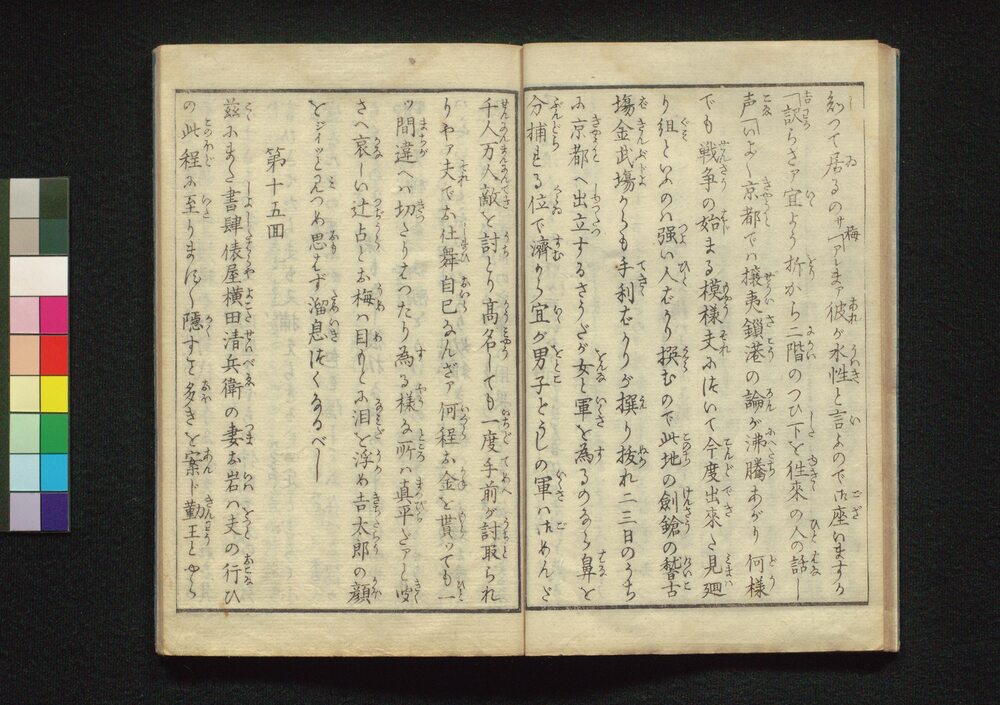 知つて居るのサ 梅「アレまア彼が水性と言ふので御座いますか
吉「訳らさア宜よう折から二階のつひ下を往来の人の話し
声「いよ〳〵京都では攘夷鎖港の論が沸騰あがり何様
でも戦争の始まる模様夫に付いて今度出来た見廻
り組といふのハ強い人ばかり撰むので此地の剣鎗の稽古
場金武場からも手利ばかりが撰り抜れ二三日のうち
に京都へ出立するさうだが女と軍を為るのなら鼻を
分捕まる位で済から宜が男子どうしの軍ハ御めんだ
千人万人敵を討とり高名しても一度手前が討取られ
りやア夫でお仕舞自己なんざア何程お金を貰ツても一
ツ間違へバ切たりはつたり為る様な所ハ真平だアと聞
さへ哀しい辻占とお梅ハ目もとに泪を浮め吉太郎の顔
をジイツと見つめ思はず溜息つくなるべし
第十五回
茲にまた書肆俵屋横田清兵衛の妻お岩ハ夫の行ひ
の此程に至りまして隠すを多きを案じ勤王とやら